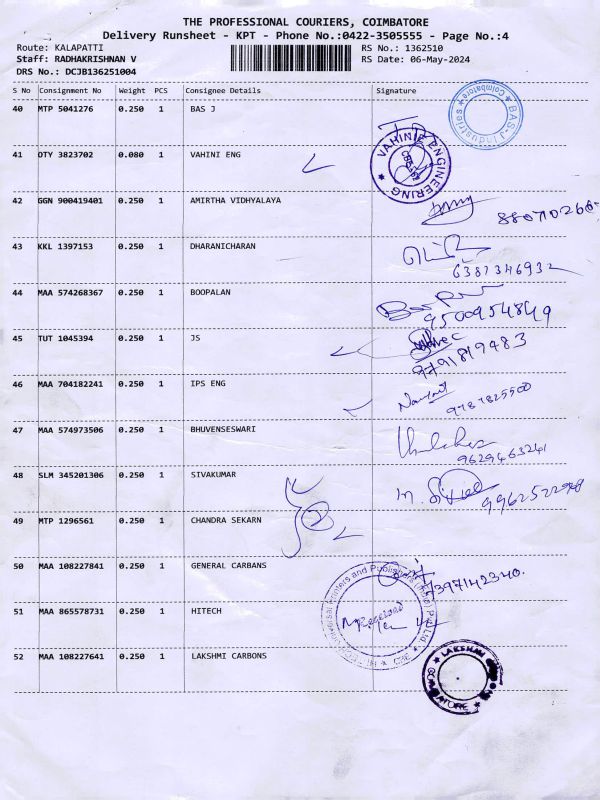 THE PROFESSIONAL COURIERS, COIMBATORE
Delivery Runsheet - KPT - Phone No.:0422-3505555 - Page No.:4
Route: KALAPATTI
RS No.: 1362510
Staff: RADHAKRISHNAN V
RS Date: 06-May-2024
DRS No.: DCJB136251004
S No Consignment No Weight PCS Consignee Details Signature
40 MTP 5041276 0.250 1 BAS J
BAS-J-Industries Coimbatore
41 DTY 3823702 0.080 1 VAHINI ENG
VAHINI ENGINEERING
42 GGN 900419401 0.250 1 AMIRTHA VIDHYALAYA
43 KKL 1397153 0.250 1 DHARANICHARAN
6387346932
44 MAA 574268367 0.250 1 BOOPALAN
9500954849
45 TUT 1045394 0.250 1 JS
9791819483
46 MAA 704182241 0.250 1 IPS ENG
47 MAA 574973506 0.250 1 BHUVENSESWARI
9629463241
48 SLM 345201306 0.250 1 SIVAKUMAR
49 MTP 1296561 0.250 1 CHANDRA SEKARN
50 MAA 108227841 0.250 1 GENERAL CARBANS
51 MAA 865578731 0.250 1 HITECH
Universal Printers and Publishers (India) Pvt Ltd.
Received
52 MAA 108227641 0.250 1 LAKSHMI CARBONS
LAKSHMI
COIMBATORE